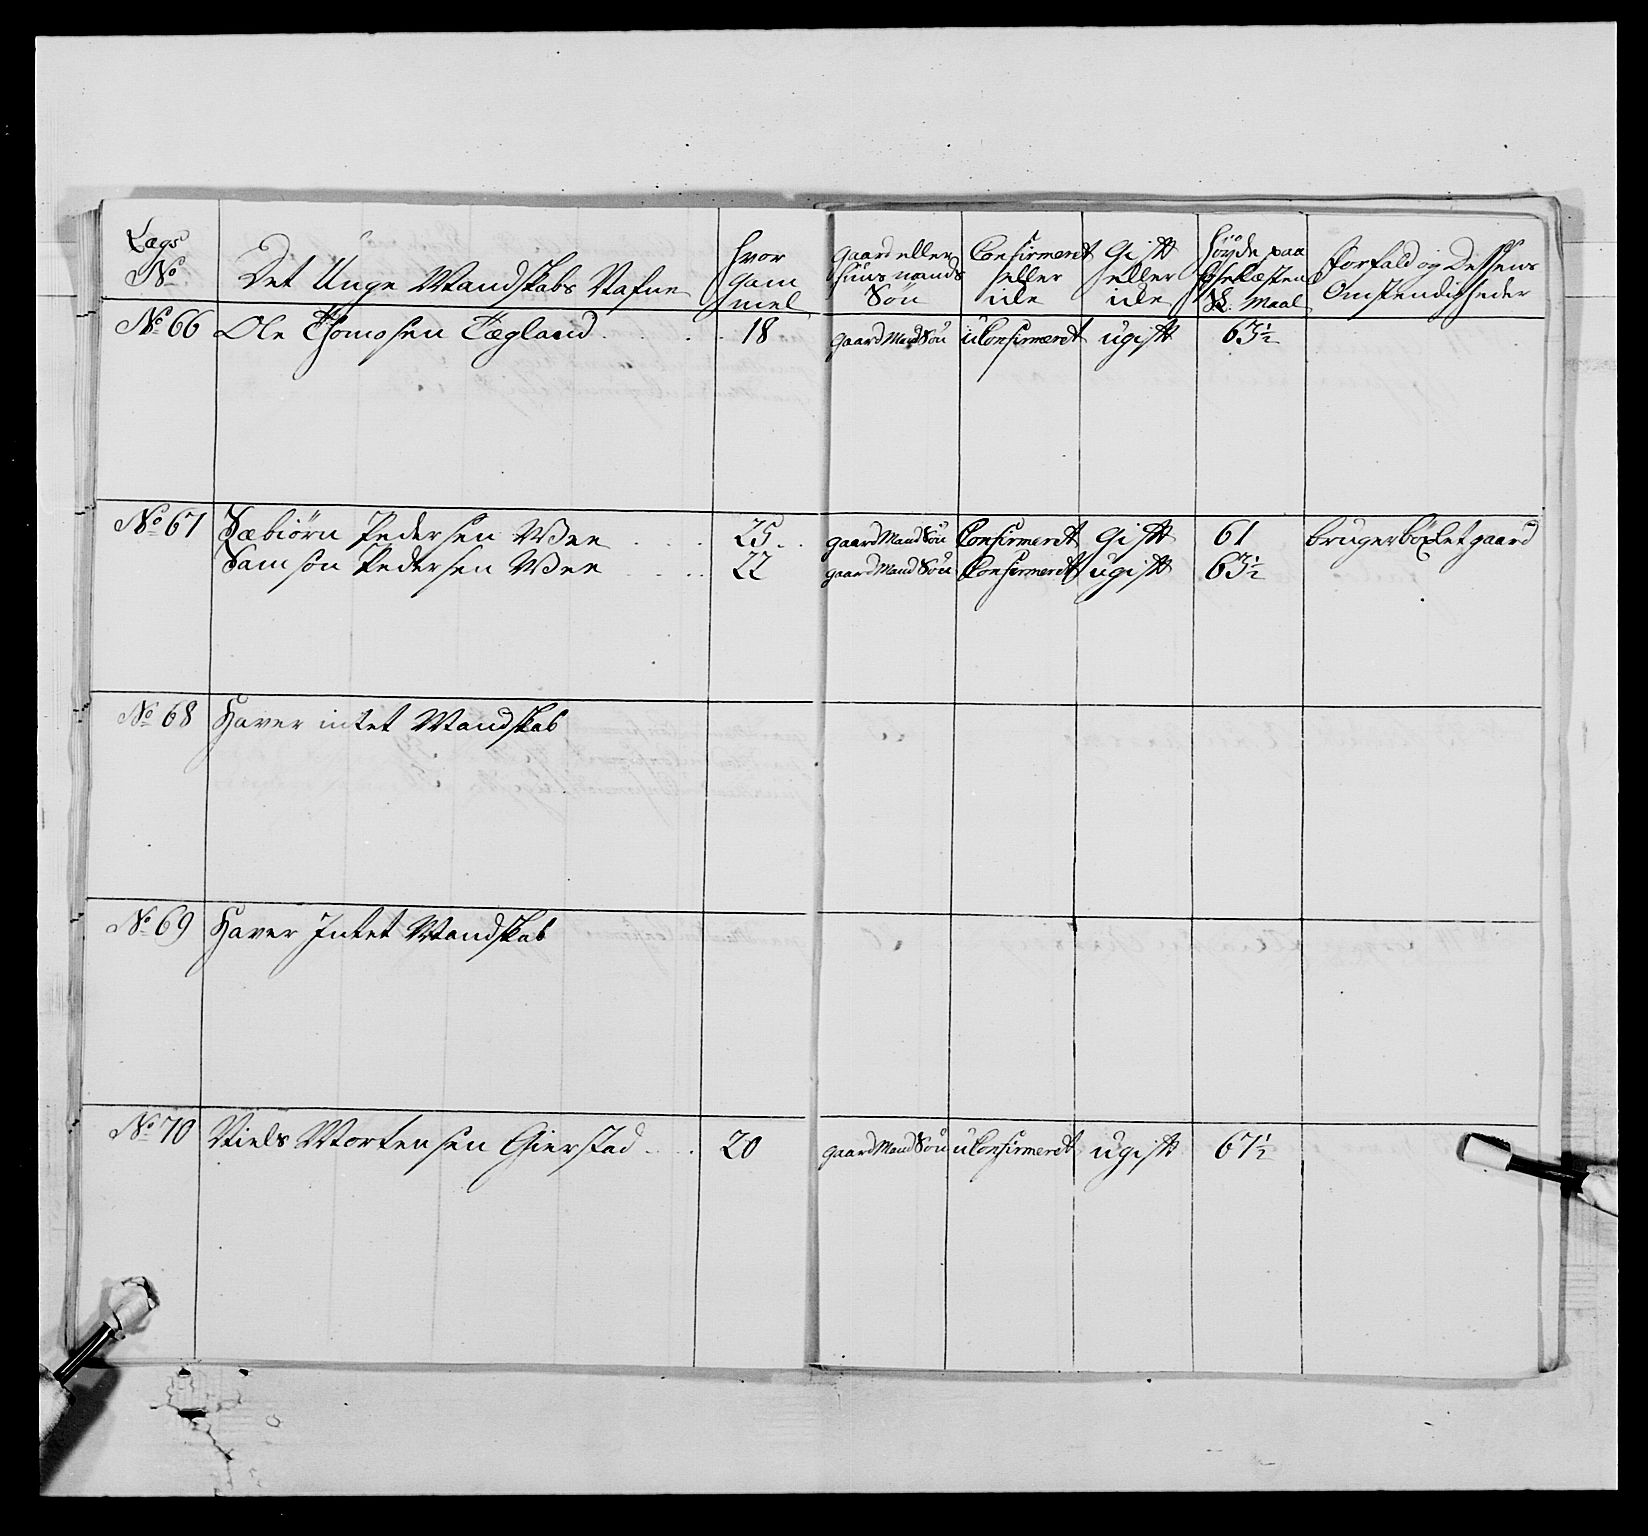 Lægs No | Det Unge Mandskabs Nafne | hvor gam mel | gaard eller huus mands Søn | Confirmeret eller icke | Gift eller icke | Høyde paa Maal | Forfald og Dessens Omstendigheder
No 66 | Ole Thomosen Tægland | 18 | gaard Mand Søn | uConfirmeret | ugift | 63½
No 67 | Sæbiørn Pedersen Wee | 25 | gaard Mand Søn | Confirmeret | Gift | 61 | bruger böxlet gaard
Samson Pedersen Wee | 22 | gaard Mand Søn | Confirmeret | ugift | 63½
No 68 | Haver intet Mandskab
No 69 | Haver Intet Mandskab
No 70 | Niels Mortensen Gierstad | 20 | gaard Mand Søn | uConfirmeret | ugift | 67½